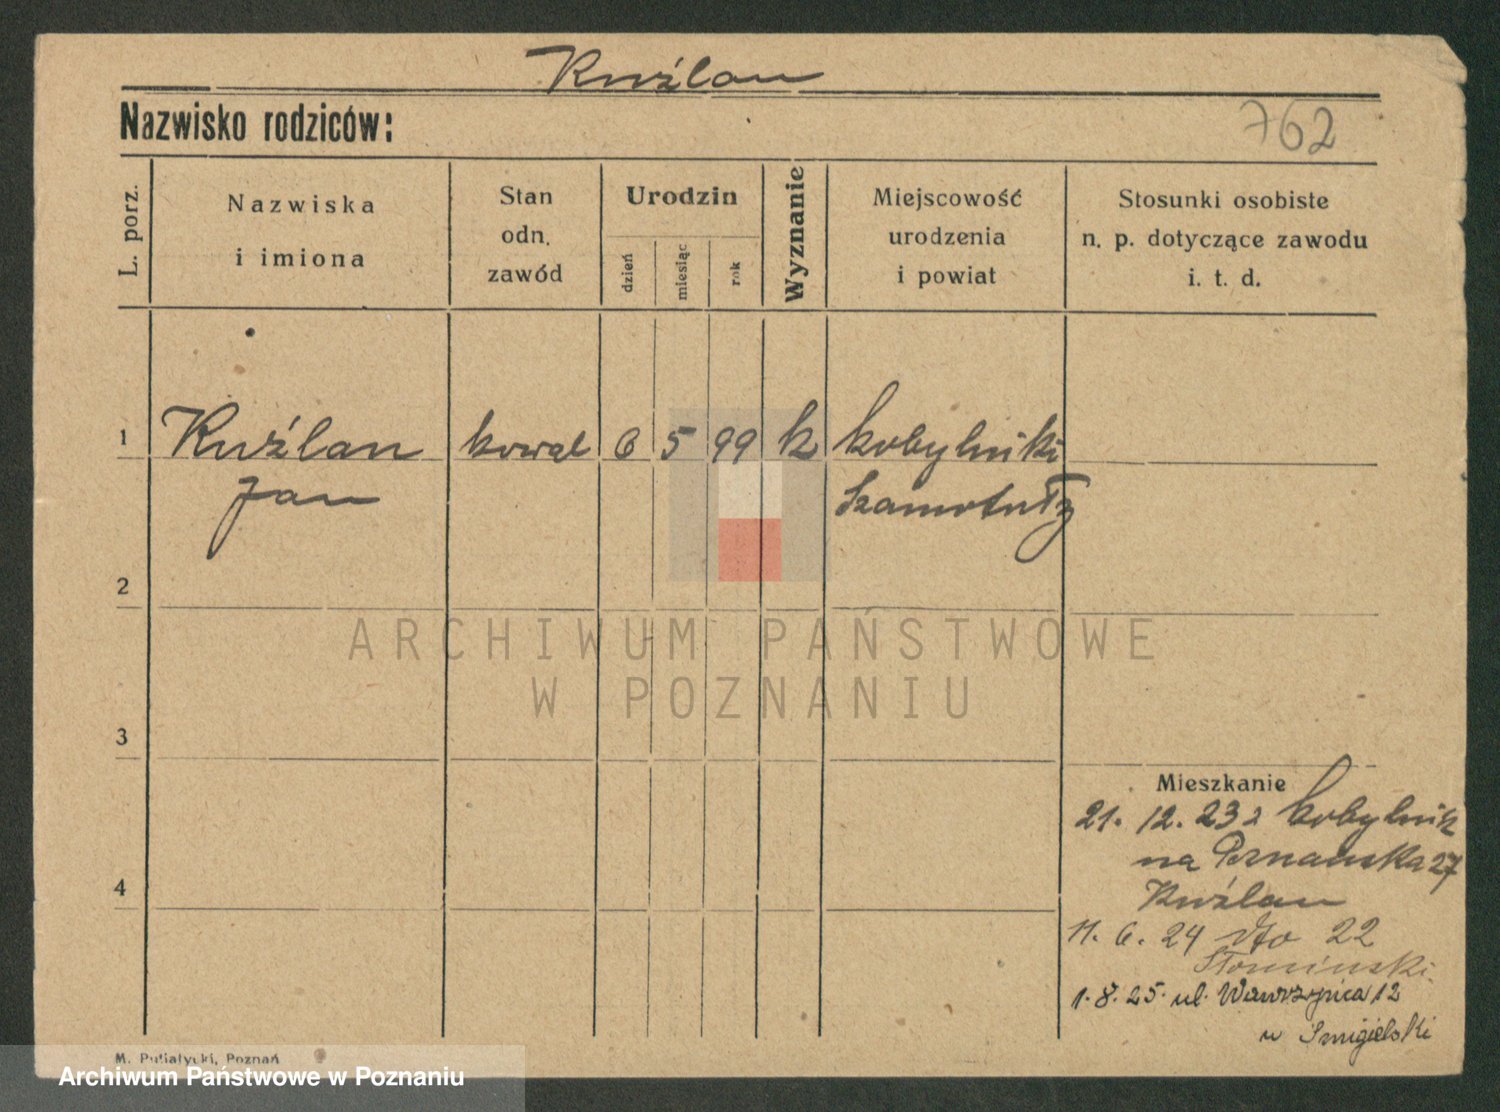 Kuźlan
Nazwisko rodziców:
762
L. porz.
Nazwiska
i imiona
Stan
odn.
zawód
Urodzin
dzień
miesiąc
rok
Wyznanie
Miejscowość
urodzenia
i powiat
Stosunki osobiste
n. p. dotyczące zawodu
i. t. d.
1 Kuźlan kowal 6 5 99 k Kobylniki
Jan Szamotuły
2
ARCHIWUM PAŃSTWOWE
W POZNANIU
3
Mieszkanie
21. 12. 23 z Kobylnik
na Poznańska 27
4
Kuźlan
11. 6. 24 dto 22
Słomiński
1. 8. 25. ul. Wawrzyńca 12
u Smigielski
M. Putiatycki, Poznań
Archiwum Państwowe w Poznaniu